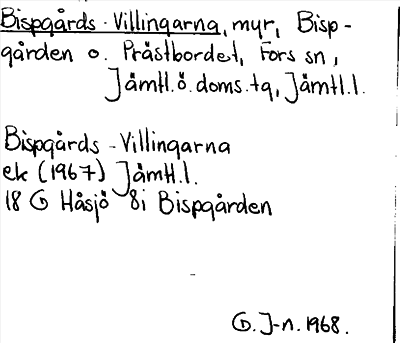 Bispgårds-Villingarna, myr, Bisp-
gården o. Prästbordet, Fors sn,
Jämtl.ö.doms.tg, Jämtl.l.
Bispgårds-Villingarna
ek (1967) Jämtl.l.
18 G Håsjö 8i Bispgården
G. J-n. 1968.